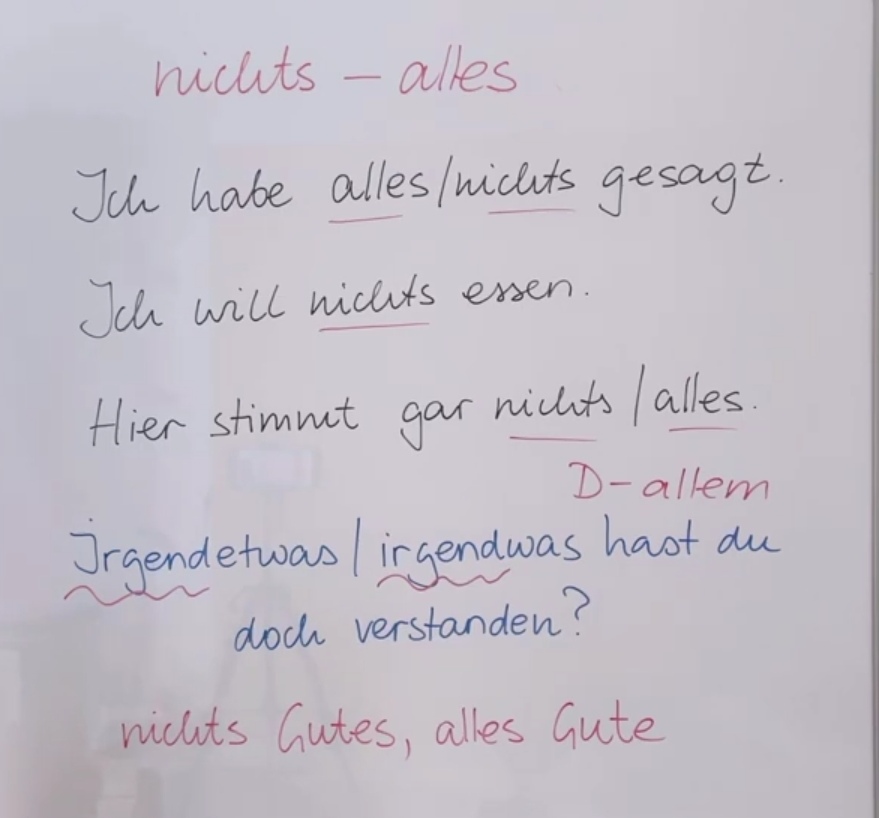 nichts – alles
Ich habe alles/nichts gesagt.
Ich will nichts essen.
Hier stimmt gar nichts / alles.
D-allem
Irgendetwas / irgendwas hast du
doch verstanden?
nichts Gutes, alles Gute